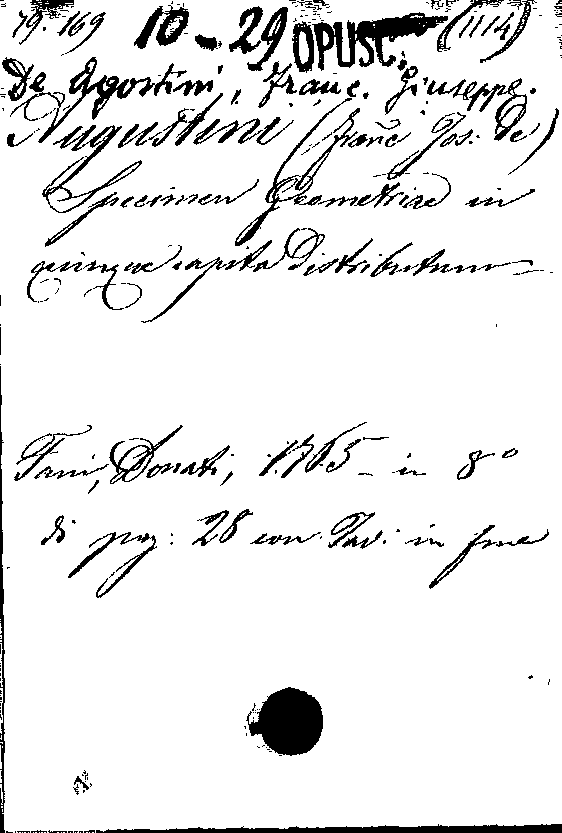 79. 169 10-29 OPUSC. (1114)
De Agostini, Franc. Giuseppe.
Augustini (Franc Jos: De)
Specimen Geometriae in
quinque capita distributum
Fani, Donati, 1765 - in 8°
di pag: 28 con Tav: in fine